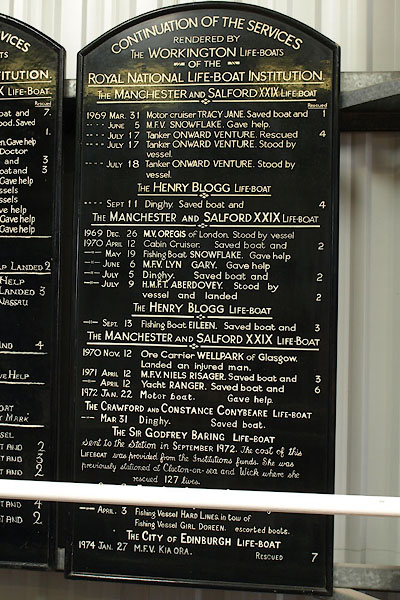 OF THE SERVICES
ITUTION.
LIFE-BOAT.
Rescued
and 7.
Saved
1
Gave help
Doctor
and 3
and 3
Gave help
vessels
vessels
Gave help
Gave help
Gave help
LANDED 2
HELP
LANDED 3
NASSAU
AND 4
GAVE HELP
MARK
AND 2
AND 3
AND 2
AND 4
AND 2
CONTINUATION OF THE SERVICES
RENDERED BY
THE WORKINGTON LIFE-BOATS
OF THE
ROYAL NATIONAL LIFE-BOAT INSTITUTION.
THE MANCHESTER AND SALFORD XXIX LIFE-BOAT
Rescued
1969 MAR. 31 Motor cruiser TRACY JANE. Saved boat and 1
" JUNE 5 M.F.V. SNOWFLAKE. Gave help.
" JULY 17 Tanker ONWARD VENTURE. Rescued 4
" JULY 17 Tanker ONWARD VENTURE. Stood by
vessel.
" JULY 18 Tanker ONWARD VENTURE. Stood by
vessel.
THE HENRY BLOGG LIFE-BOAT
" SEPT 11 Dinghy. Saved boat and 4
THE MANCHESTER AND SALFORD XXIX LIFE-BOAT
1969 DEC. 26 M.V. OREGIS of London. Stood by vessel
1970 APRIL 12 Cabin Cruiser. Saved boat and 2
" MAY 19 Fishing Boat SNOWFLAKE. Gave help
" JUNE 6 M.F.V. LYN GARY. Gave help
" JULY 5 Dinghy. Saved boat and 2
" JULY 9 H.M.F.T. ABERDOVEY. Stood by
vessel and landed 2
THE HENRY BLOGG LIFE-BOAT
" SEPT. 13 Fishing Boat EILEEN. Saved boat and 3
THE MANCHESTER AND SALFORD XXIX LIFE-BOAT
1970 NOV. 12 Ore Carrier WELLPARK of Glasgow.
Landed an injured man.
1971 APRIL 12 M.F.V. NIELS RISAGER. Saved boat and 3
" APRIL 12 Yacht RANGER. Saved boat and 6
1972 JAN. 22 Motor boat. Gave help.
THE CRAWFORD AND CONSTANCE CONYBEARE LIFE-BOAT
" MAR 31 Dinghy. Saved boat.
THE SIR GODFREY BARING LIFE-BOAT
sent to the Station in September 1972. The cost of this
LIFEBOAT was provided from the Institutions funds. She was
previously stationed at Clacton-on-sea and Wick where she
rescued 127 lives.
" APRIL. 3 Fishing Vessel HARD LINES. in tow of
Fishing Vessel GIRL DOREEN. escorted boats.
THE CITY OF EDINBURGH LIFE-BOAT
1974 JAN. 27 M.F.V. KIA ORA. RESCUED 7